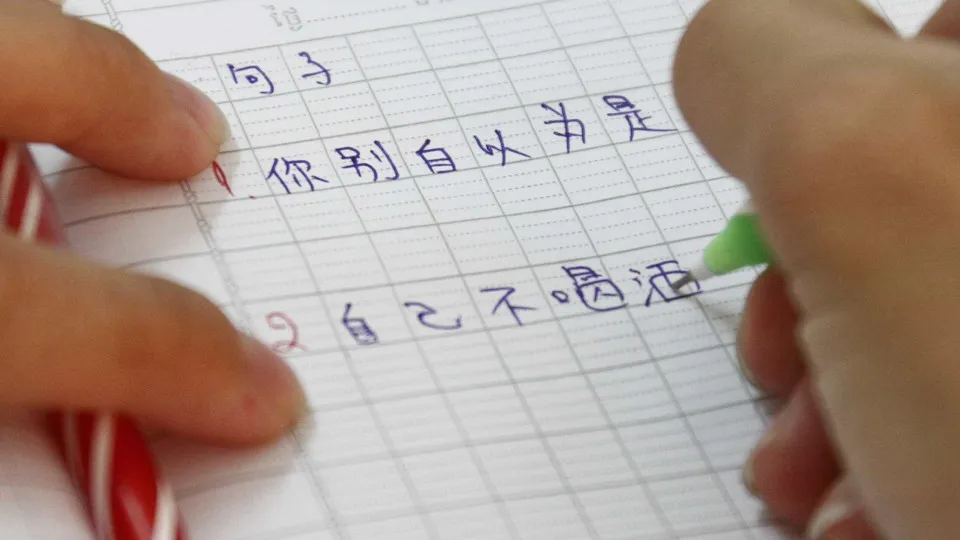 句子
1. 你别自以为是
2 自己不喝酒